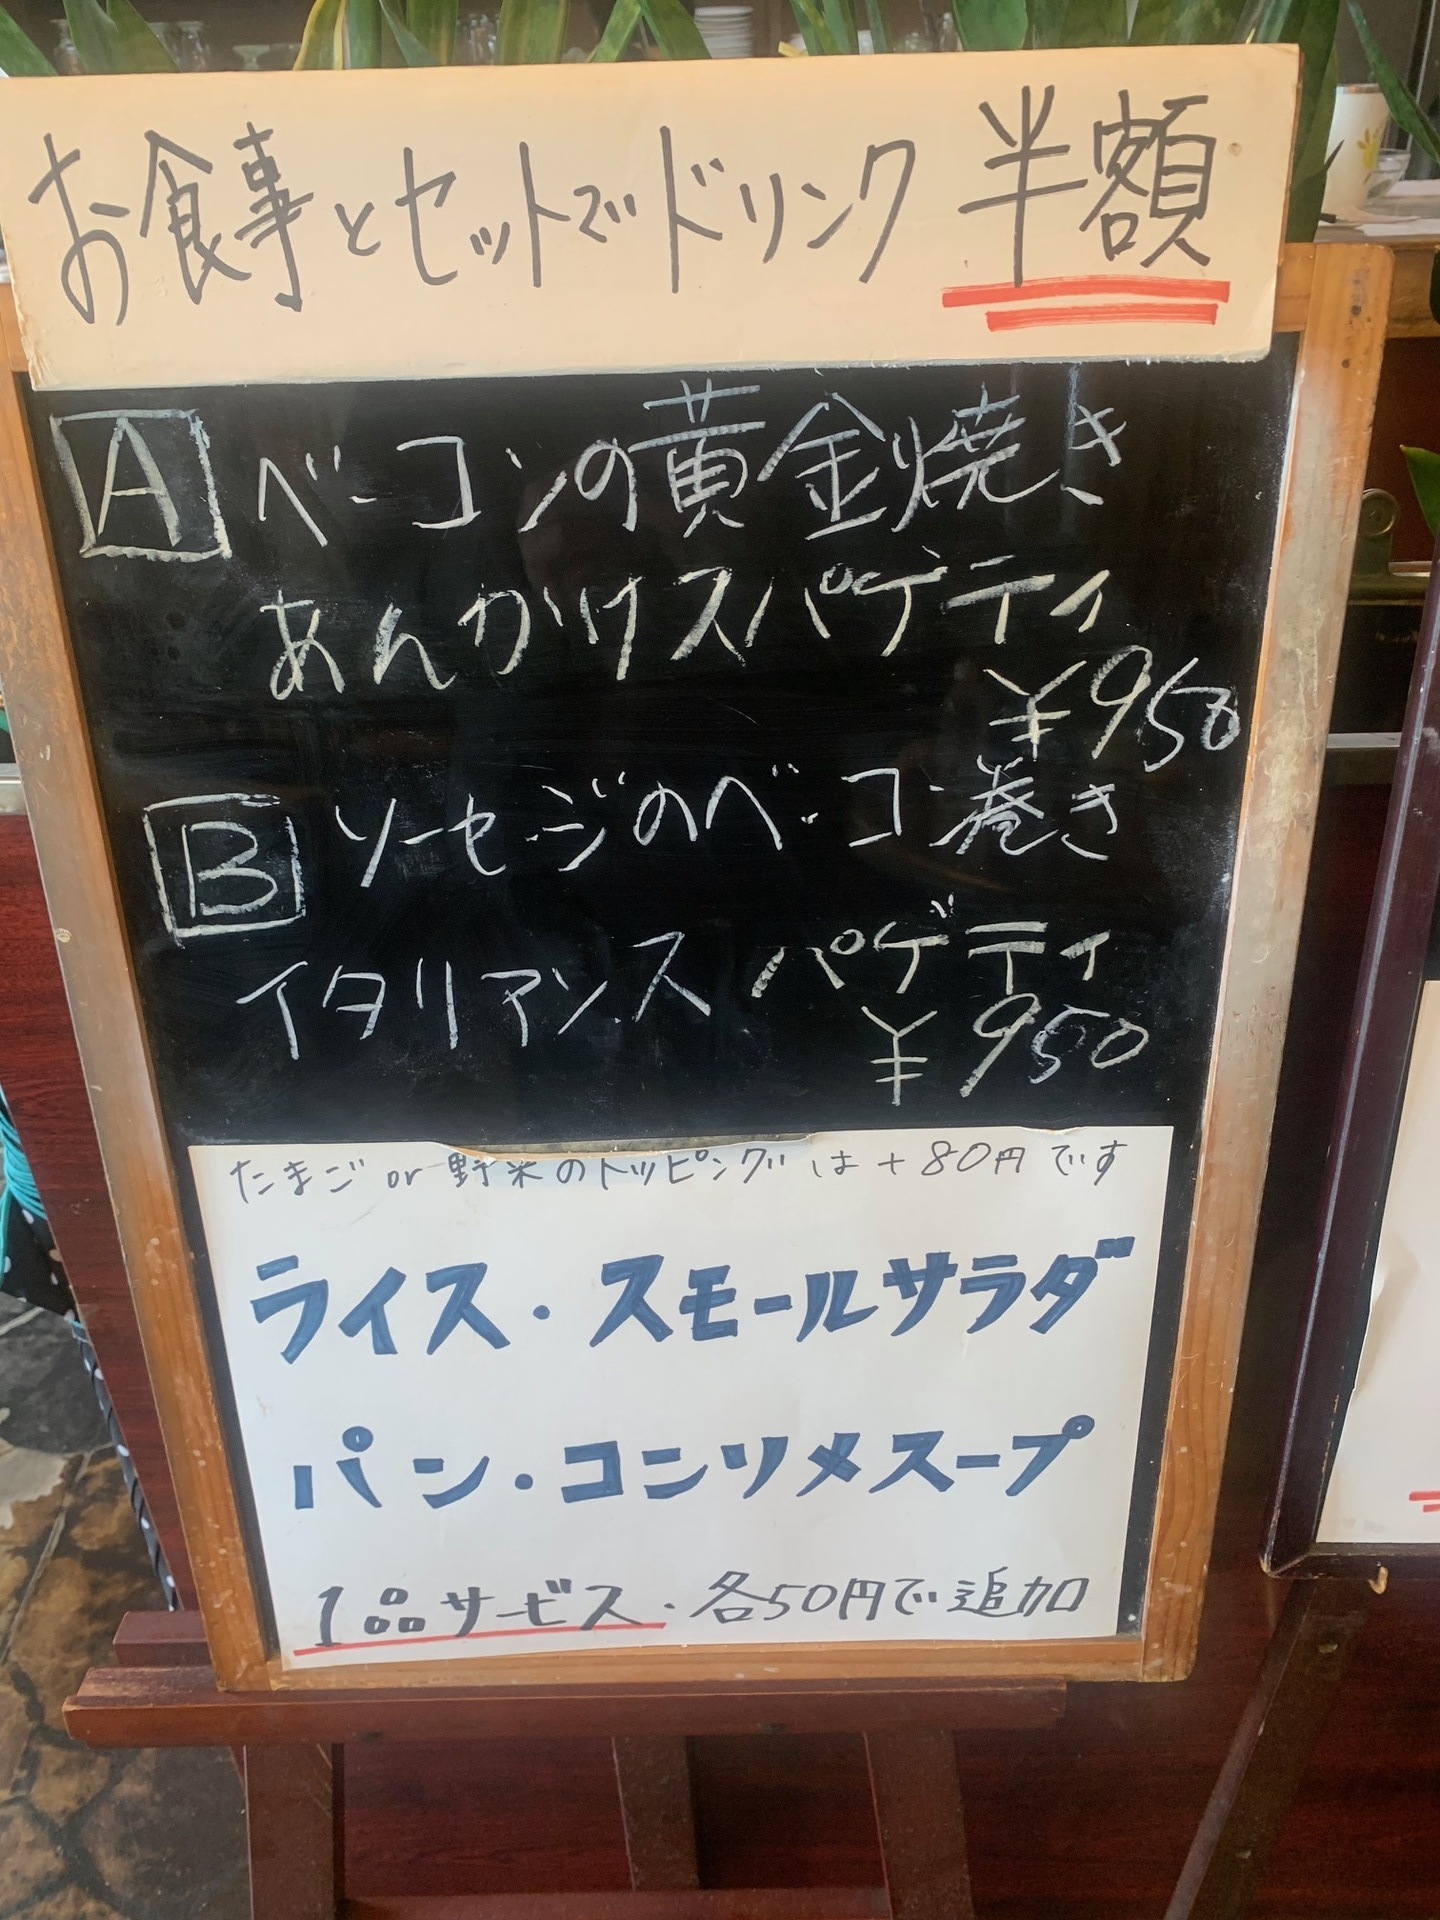 お食事とセットでドリンク 半額
A ベーコンの黄金焼き
あんかけスパゲティ
¥950
B ソーセージのベーコン巻き
イタリアンスパゲティ
¥950
たまご or 野菜のトッピングは+80円です
ライス・スモールサラダ
パン・コンソメスープ
1品サービス・各50円で追加